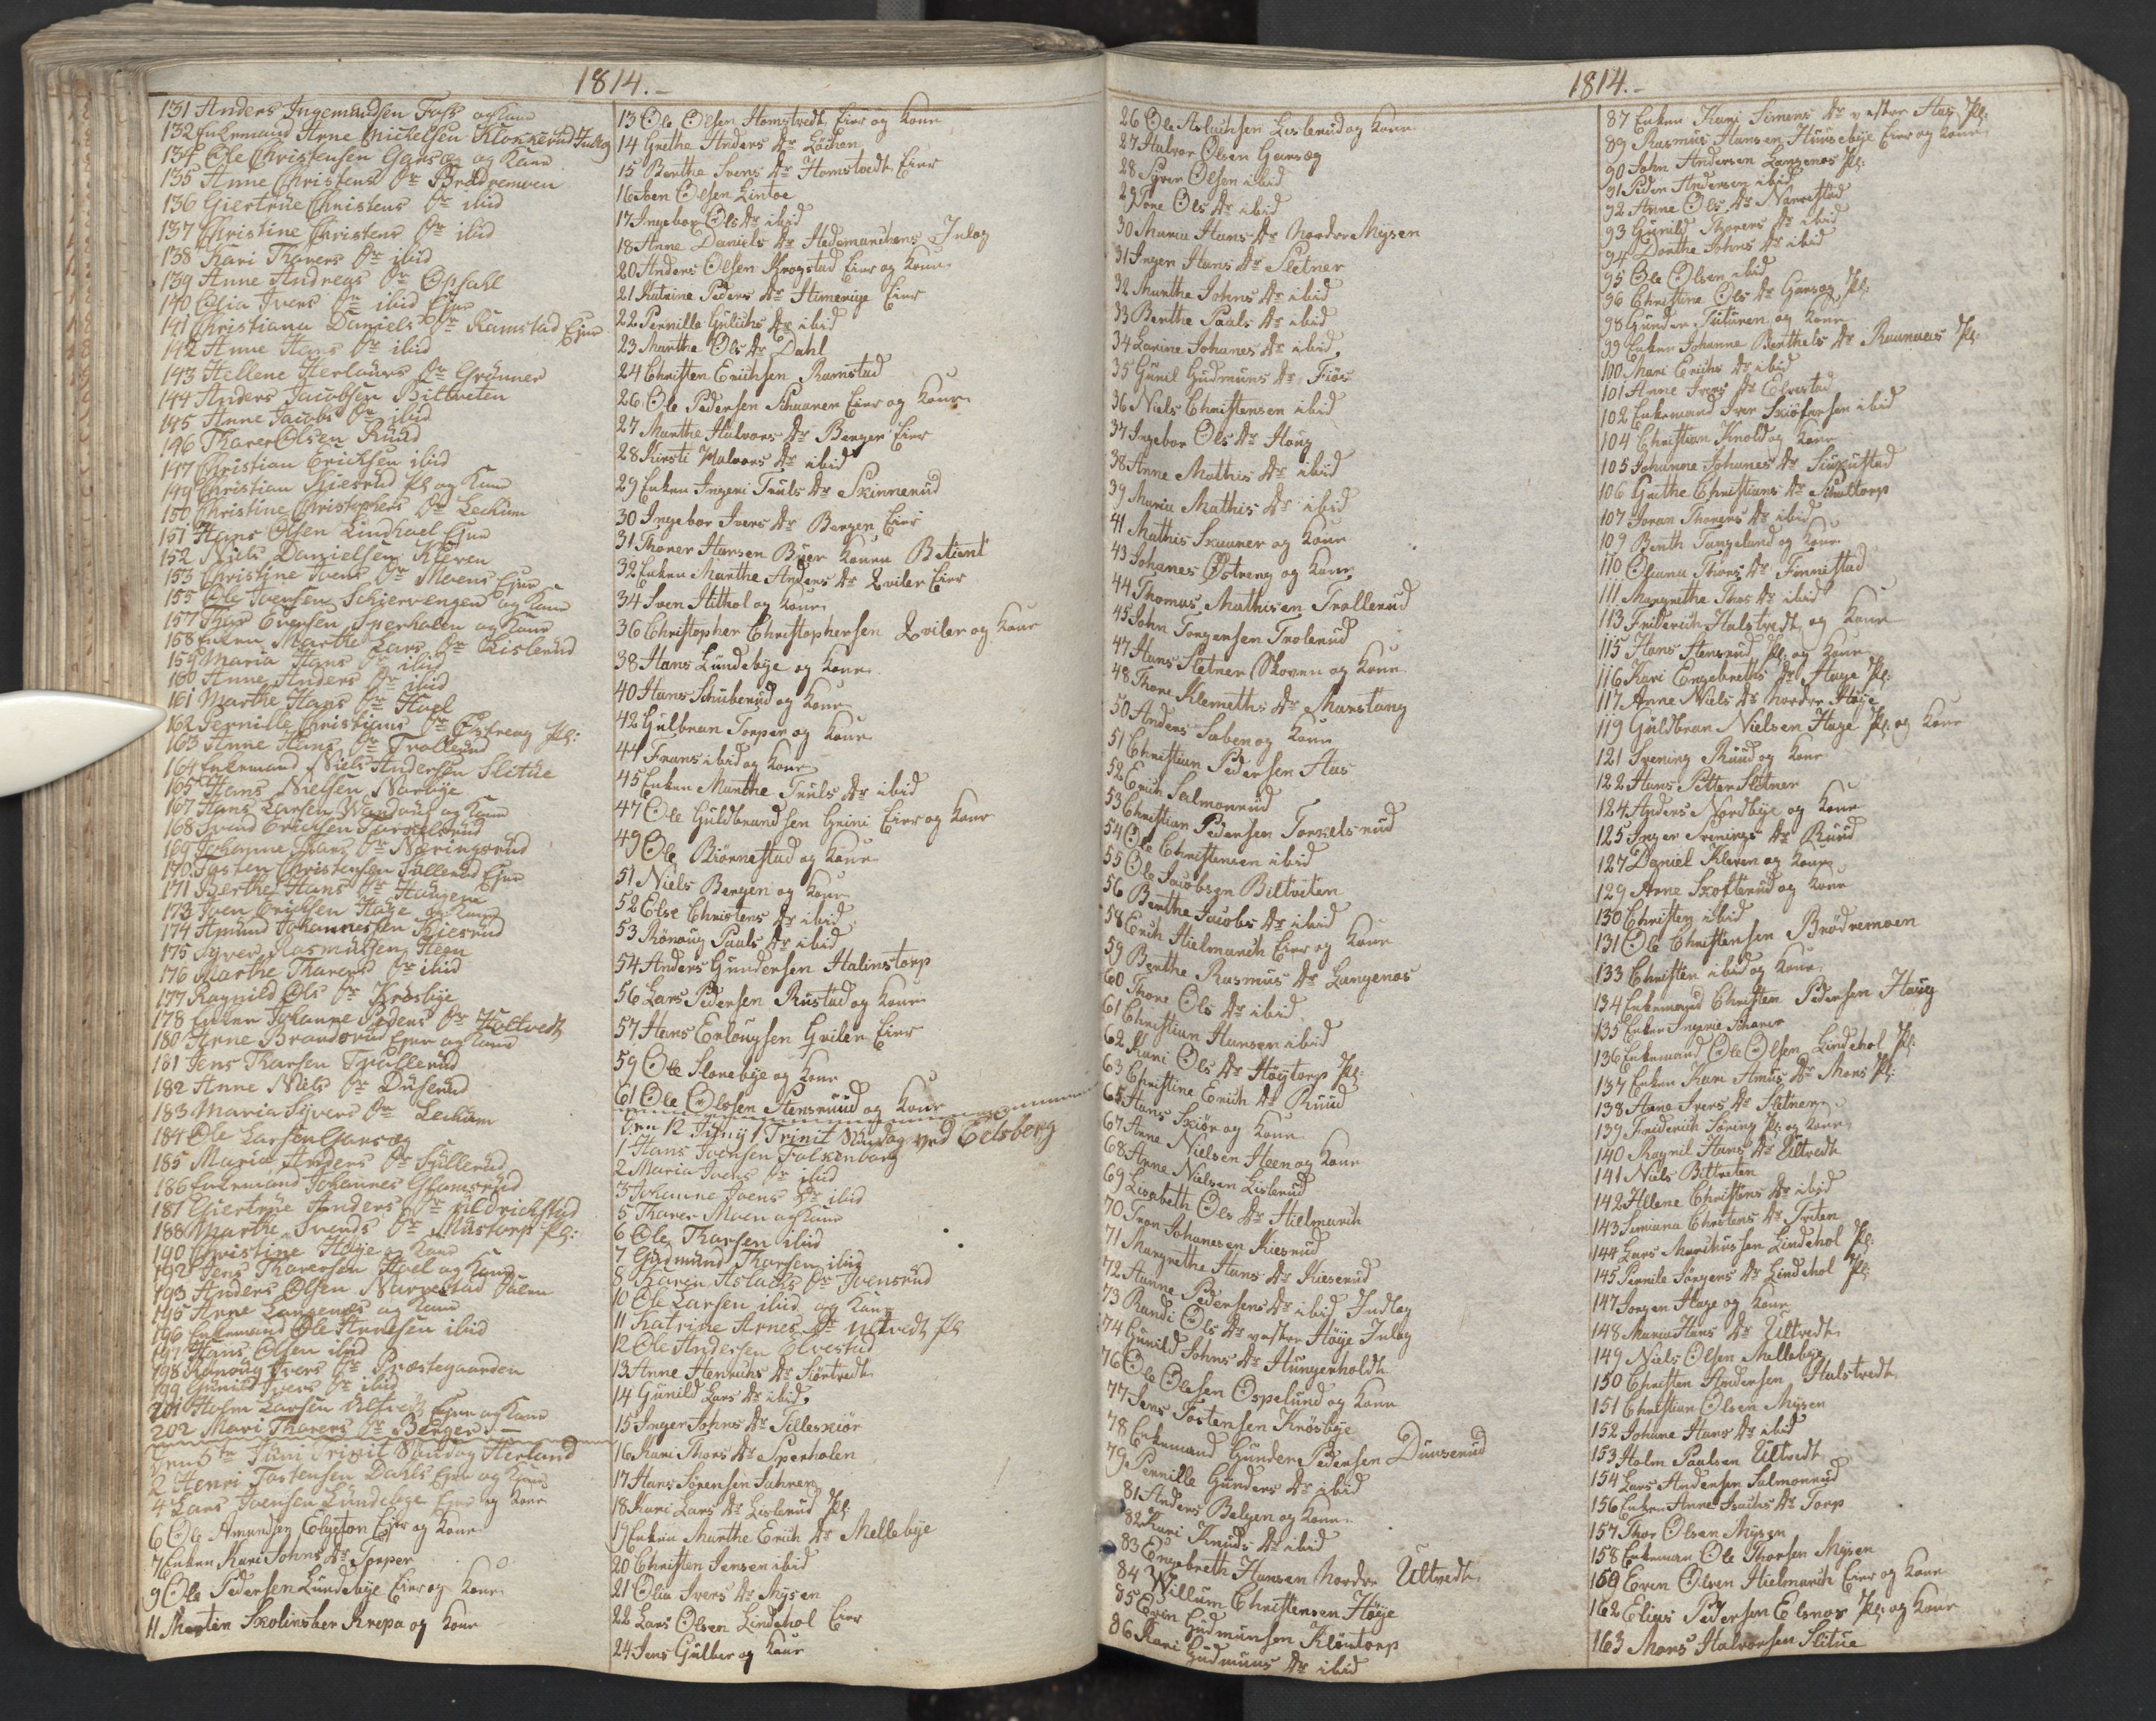 1814.-
131 Anders Ingemundsen Foss og Kone
132 Enkemand Arne Mickelsen Klokkerud Indlog
134 Ole Christensen Garsæg og Kone
135 Anne Christens Dr Brødremoen
136 Giertrue Christens Dr ibid
137 Christine Christens Dr ibid
138 Kari Thorers Dr ibid
139 Anne Andreas Dr Opsahl
140 Olia Ivers Dr ibid Ejer
141 Christiana Daniels Dr Ramstad Ejer
142 Anne Hans Dr ibid
143 Hellene Herlours Dr Grønner
144 Anders Jacobsen Biltveten
145 Anne Jacobs Dr ibid
146 Thorer Olsen Ruud
147 Christian Ericksen ibid
149 Christian Kiesrud Pl og Kone
150 Christine Christophers Dr Leckum
151 Hans Olsen Lindhoel Ejer
152 Niels Danielsen Kleven
153 Christine Ivers Dr Moens Ejer
155 Ole Joensen Schiervengen og Kone
157 Thor Evensen Sperholen og Kone
158 Enken Marthe Lars Dr Lislerud
159 Maria Hans Dr ibid
160 Anne Anders Dr ibid
161 Marthe Hans Dr Hoel
162 Pernille Christians Dr Østreng Pl:
163 Anne Hans Dr Trollerud
164 Enkemand Niels Andersen Slitue
165 Hans Nielsen Narbye
167 Hans Larsen og Kone
168 Svend Ericksen
169 Johanne Hans Dr Næringsrud
170 Tosten Christensen Sullerud Ejer
171 Berthe Hans Dr Haugene
173 Iver Ericksen Hage og Kone
174 Amund Johannessen Kiesrud
175 Syver Rasmussen Heen
176 Marthe Thorers Dr ibid
177 Ragnild Ols Dr Krosbye
178 Enken Johanne Peders Dr Holtvedt
180 Arne Brandsrud Ejer og Kone
181 Jens Thorsen Trollerud
182 Anne Nils Dr Duserud
183 Maria Syvers Dr Leckum
184 Ole Larsen Garsæg
185 Maria Anders Dr Sullerud
186 Enkemand Johannes Glomsrud
187 Giertrue Anders Dr Uldrichstad
188 Marthe Svends Dr Mustorp Pl:
190 Christine Høye og Kone
192 Jens Thorersen Hoel og Kone
193 Anders Olsen Narvestad
195 Anne Langenes og Kone
196 Enkemand Ole Arnesen ibid
197 Hans Olsen ibid
198 Rønoug Ivers Dr Præstegaarden
199 Gunild Ivers Dr ibid
201 Holm Larsen Ultvedt Ejer og Kone
202 Mari Thorers Dr Berger -
Den 5te Juni Trinit Søndag Herland
2 Henri Tostensen Dahls Ejer og Kone
4 Lars Joensen Lundebye Ejer og Kone
6 Ole Amundsen Elgeton Ejer og Kone
7 Enken Kari Johns Dr Torper
9 Ole Pedersen Lundebye Eier og Kone
11 Morten Skolinsber Krepa og Kone
13 Ole Olsen Homstvedt Eier og Kone
14 Grethe Anders Dr Løchen
15 Berthe Svens Dr Homstvedt Eier
16 Joen Olsen Lintoe
17 Ingebor Ols Dr ibid
18 Anne Daniels Dr Hedemarchens Inlog
20 Anders Olsen Krogstad Eier og Kone
21 Katrine Peders Dr Himerige Eier
22 Pernilla Gulichs Dr ibid
23 Marthe Ols Dr Dahl
24 Christen Erichsen Ramstad
26 Ole Pedersen Schaaren Eier og Kone
27 Marthe Halvors Dr Bergen Eier
28 Kirsti Halvors Dr ibid
29 Enken Ingeri Truls Dr Skinnerud
30 Ingebor Ivers Dr Bergen Eier
31 Thorer Hansen Buer Konen Betient
32 Enken Marthe Anders Dr Qviler Eier
34 Sven Hithol og Kone
36 Christopher Christophersen Qviler og Kone
38 Hans Lundebye og Kone
40 Hans Schuberud og Kone
42 Gulbran Torper og Kone
44 Frans ibid og Kone
45 Enken Marthe Truls Dr ibid
47 Ole Guldbrandsen Grini Eier og Kone
49 Ole Biørnestad og Kone
51 Niels Bergen og Kone
52 Else Christens Dr ibid
53 Rønoug Pauls Dr ibid
54 Anders Gundersen Halinstorp
56 Lars Pedersen Rustad og Kone
57 Hans Erlougsen Gviler Eier
59 Ole Slorebye og Kone
61 Ole Olssen Stensruud og Kone
Den 12 Junij 1 Trinit Søndag ved Eidsberg
1 Hans Joensen Falkenborg
2 Maria Joens Dr ibid
3 Johanne Joens Dr ibid
5 Thorer Moen og Kone
6 Ole Thorsen ibid
7 Gudmund Thorsen ibid
8 Karen Aslachs Dr Joensrud
10 Ole Larsen ibid og Kone
11 Katrine Arnes Dr Ultvedt Pl
12 Ole Andersen Elvestad
13 Anne Henrichs Dr Hiertvedt
14 Gunild Lars Dr ibid
15 Inger Johns Dr Tilleskiør
16 Kari Thors Dr Sperholen
17 Hans Sørensen Sahren
18 Kari Lars Dr Lislerud Pl:
19 Enken Marthe Erich Dr Mellebye
20 Christen Jensen ibid
21 Olia Ivers Dr Mysen
22 Lars Olsen Lindehol Eier
24 Jens Gulber og Kone
1814.-
26 Ole Aslachsen Lislerud og Kone
27 Halvor Olsen Garsæg
28 Syver Olsen ibid
29 Tore Ols Dr ibid
30 Maria Hans Dr Nordre Mysen
31 Inger Hans Dr Sletner
32 Marthe Johns Dr ibid
33 Berthe Pauls Dr ibid
34 Lorine Johanes Dr ibid
35 Gunil Gudmuns Dr Fiøs
36 Niels Christensen ibid
37 Ingebor Ols Dr Houg
38 Anne Mathis Dr ibid
39 Maria Mathis Dr ibid
41 Mathis Skaaner og Kone
43 Johanes Østreng og Kone
44 Thomas Mathisen Trollerud
45 John Torgersen Trolerud
47 Hans Sletner Skoven og Kone
48 Thore Klemeths Dr Marstang
50 Anders Saben og Kone
51 Christian Pedersen Aas
52 Erich Salmonrud
53 Christian Pedersen Torkelsrud
54 Ole Christensen ibid
55 Ole Jacobsen Biltveten
56 Berthe Jacobs Dr ibid
58 Erich Hielmarch Eier og Kone
59 Berthe Rasmus Dr Langenæs
60 Thore Ols Dr ibid
61 Christian Hansen ibid
62 Kari Ols Dr Høytorp Pl:
63 Christine Erich Dr Ruud
65 Hans Skiør og Kone
67 Arne Nielsen Heen og Kone
68 Anne Nielsen Lislerud
69 Lisabeth Ols Dr Hielmarch
70 Tron Johanesen Kiesrud
71 Margrethe Hans Dr Kieserud
72 Hanne Pedersens Dr ibid Indlog
73 Randi Ols Dr vestre Høje Inlog
74 Gunild Johns Dr Hungerholdt
76 Ole Olsen Ospelund og Kone
77 Jens Tostensen Krosbye
78 Enkemand Gunder Pedersen Dunserud
79 Pernille Gunders Dr ibid
81 Anders Belgen og Kone
82 Kari Knuds Dr ibid
83 Engebreth Hansen Nordre Ultvedt
84 Willum Christensen Høje
85 Even Gudmunsen Kløntorp
86 Kari Gudmuns Dr ibid
87 Enken Kari Simens Dr vestre Aas Pl:
89 Rasmus Hansen Huusebye Eier og Kone
90 John Andersen Langenæs Pl:
91 Peder Andersen ibid
92 Anne Ols Dr Narvestad
93 Gunild Thorers Dr ibid
94 Dorthe Johns Dr ibid
95 Ole Olsen ibid
96 Christine Ols Dr Garsæg Pl:
98 Gunder Tuturen og Kone
99 Enken Johanne Berthels Dr Ramnæs Pl:
100 Mari Erichs Dr ibid
101 Anne Ivers Dr Elvestad
102 Enkemand Iver Skiøfersen ibid
104 Christian Knold og Kone
105 Johanne Johanes Dr Siugustad
106 Grethe Christians Dr Schultorp
107 Joran Thorers Dr ibid
109 Benth Tangelund og Kone
110 Oleana Thors Dr Finnistad
111 Margrethe Thos Dr ibid
113 Friderich Halstvedt og Kone
115 Hans Stensrud Pl: og Kone
116 Kari Engebreths Dr Hage Pl:
117 Anne Niels Dr Nordre Høye
119 Guldbran Nielsen Hage Pl: og Kone
121 Svening Ruud og Kone
122 Hans Petter Sletner
124 Anders Nordbye og Kone
125 Inger Svenings Dr Ruud
127 Daniel Kleven og Kone
129 Arne Skofterud og Kone
130 Christen ibid
131 Ole Christensen Brødremoen
133 Christen ibid og Kone
134 Enkemand Christen Pedersen Haug
135 Enken Ingerie
136 Enkemand Ole Olsen Lindehol Pl:
137 Enken Kari Amus Dr Mons Pl:
138 Anne Ivers Dr Sletner
139 Friderich Søring Pl: og Kone
140 Ragnil Hans Dr Ultvedt
141 Niels Bittveten
142 Helene Christens Dr ibid
143 Simiana Christens Dr Treten
144 Lars Marchussen Lindehol Pl:
145 Pernile Jørgens Dr Lindehol Pl:
147 Jorgen Hage og Kone
148 Maria Hans Dr Ultvedt
149 Niels Olsen Mellebye
150 Christen Andersen Halstvedt
151 Christian Olsen Mysen
152 Johane Hans Dr ibid
153 Holm Paulsen Ultvedt
154 Lars Andersen Salmonrud
156 Enken Anne Isachs Dr Torp
157 Thor Olsen Mysen
158 Enkeman Ole Thorsen Mysen
160 Even Olsen Hielmarch Eier og Kone
162 Elias Pedersen Elsnes Pl: og Kone
163 Mons Halvorsen Slitue